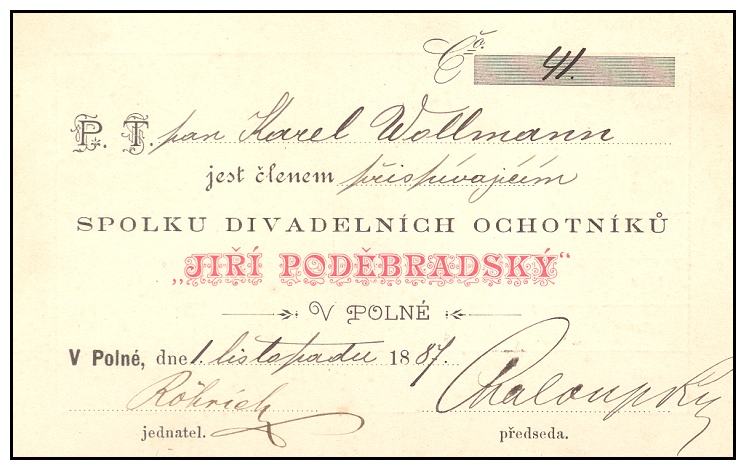 Čo. 41.
P. T. pan Karel Wollmann
jest členem přispívajícím
SPOLKU DIVADELNÍCH OCHOTNÍKŮ
„JIŘÍ PODĚBRADSKÝ“
V POLNÉ
V Polné, dne 1. listopadu 1887.
Röhrich Chaloupký
jednatel. předseda.